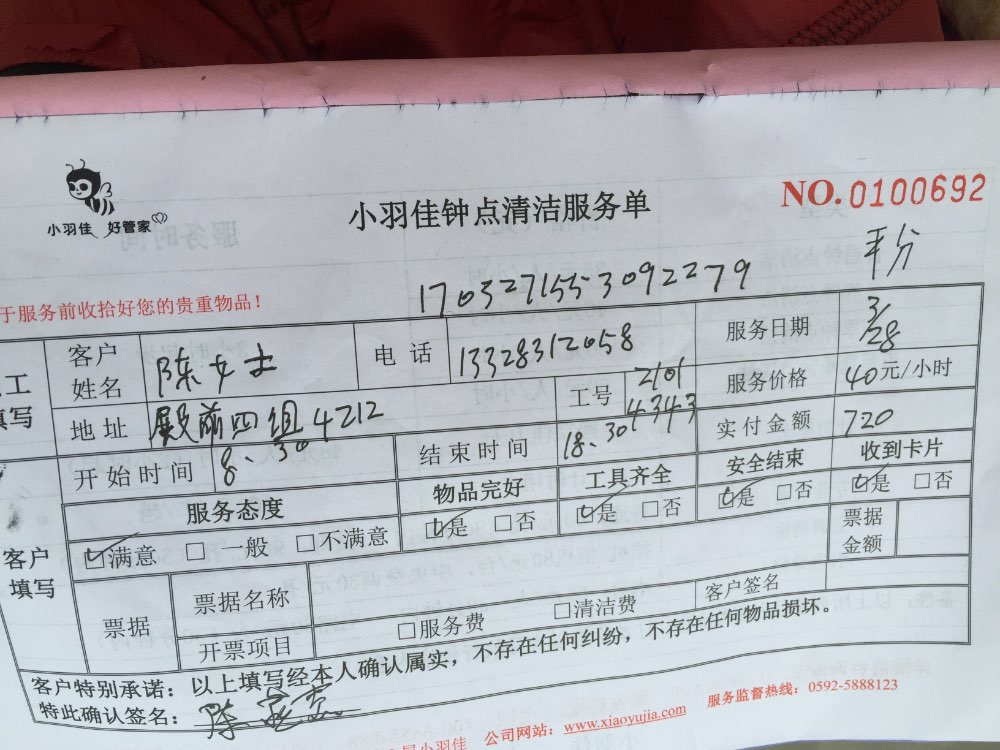 小羽佳 好管家
小羽佳钟点清洁服务单
NO.0100692
平分
1703271553092279
于服务前收拾好您的贵重物品！
工
填写
客户
姓名
陈女士
电 话
13328312058
服务日期
3/28
地 址
殿前四组4212
工号
2101
4343
服务价格
40元/小时
开 始 时 间
8.30
结 束 时 间
18.30
实 付 金 额
720
客户
填写
服务态度
物品完好
工具齐全
安全结束
收到卡片
☑满意 □一般 □不满意
☑是 □否
☑是 □否
☑是 □否
☑是 □否
票据
票据名称
票据
金额
开票项目
□服务费 □清洁费
客户签名
客户特别承诺：以上填写经本人确认属实，不存在任何纠纷，不存在任何物品损坏。
特此确认签名：陈
小羽佳 公司网站：www.xiaoyujia.com 服务监督热线：0592-5888123